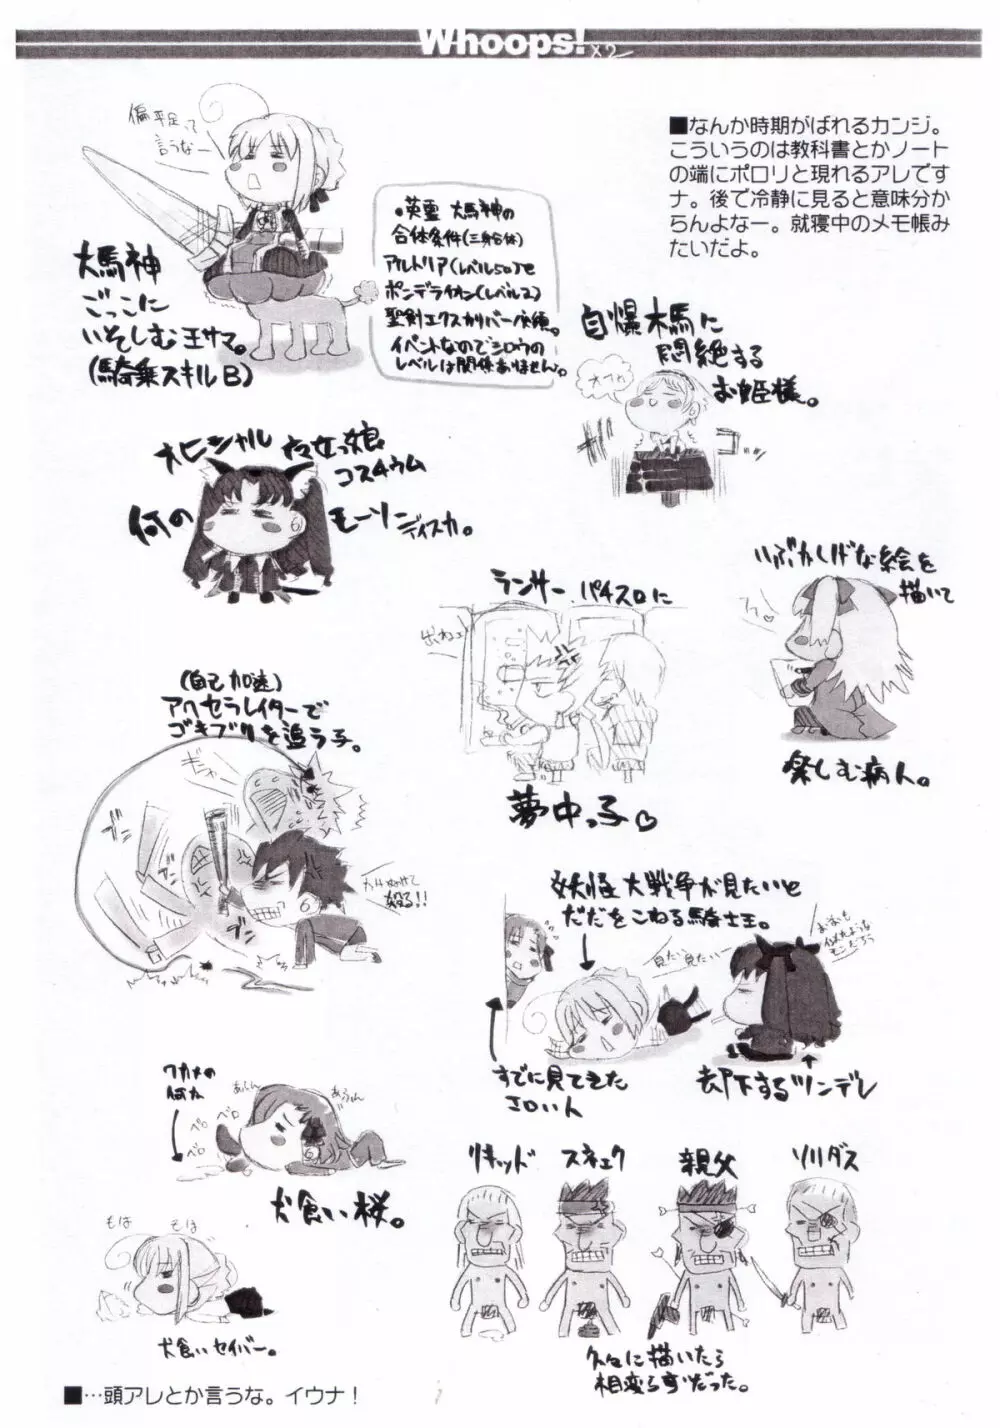 Whoops!
×2
偏平足って
言うなー
■なんか時期がばれるカンジ。
こういうのは教科書とかノート
の端にポロリと現れるアレです
ナ。後で冷静に見ると意味分か
らんよなー。就寝中のメモ帳み
たいだよ。
大馬神
ごっこに
いそしむ王サマ。
(騎乗スキルB)
・英霊 大馬神の
合体条件(三身合体)
アルトリア(レベル50)と
ポンデライオン(レベル2)
聖剣エクスカリバー装備。
イベントなのでシロウの
レベルは関係ありません。
自爆木馬に
悶絶する
お姫様。
オフゥ
オヒシャル
コスチウム
何の
モーソン
ディスカ。
ランサー パチスロに
出ねェ
夢中っ子♡
いぶかしげな絵を
描いて
フフ♡
楽しむ病人。
(自己加速)
アクセラレイターで
ゴキブリを追う子。
殴る!!
妖怪大戦争が見たいと
だだをこねる騎士王。
見たい見たいー
すでに見てきた
エロい人
却下するツンデレ
ワカメの
何か
ペロ
ペロ
ペロ
犬食い桜。
もは
もは
犬食いセイバー。
リキッド
スネェク
親父
ソリダス
久々に描いたら
相変らずだった。
■…頭アレとか言うな。イウナ！